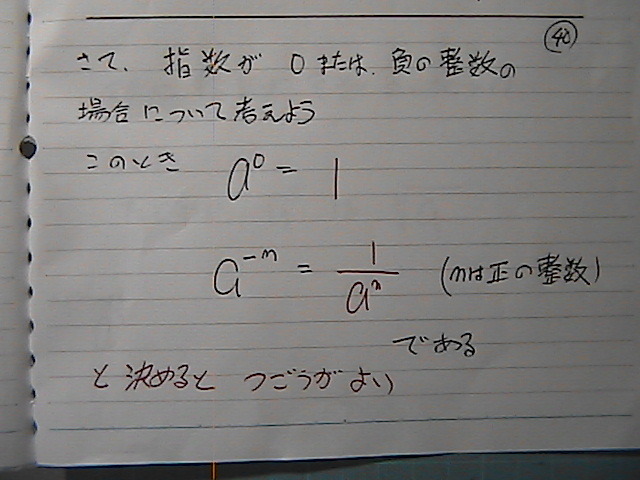 ㊵
さて、指数が 0または、負の整数の
場合について考えよう
このとき a⁰ = 1
a⁻ⁿ = 1/aⁿ (nは正の整数)
である
と決めると つごうがよい